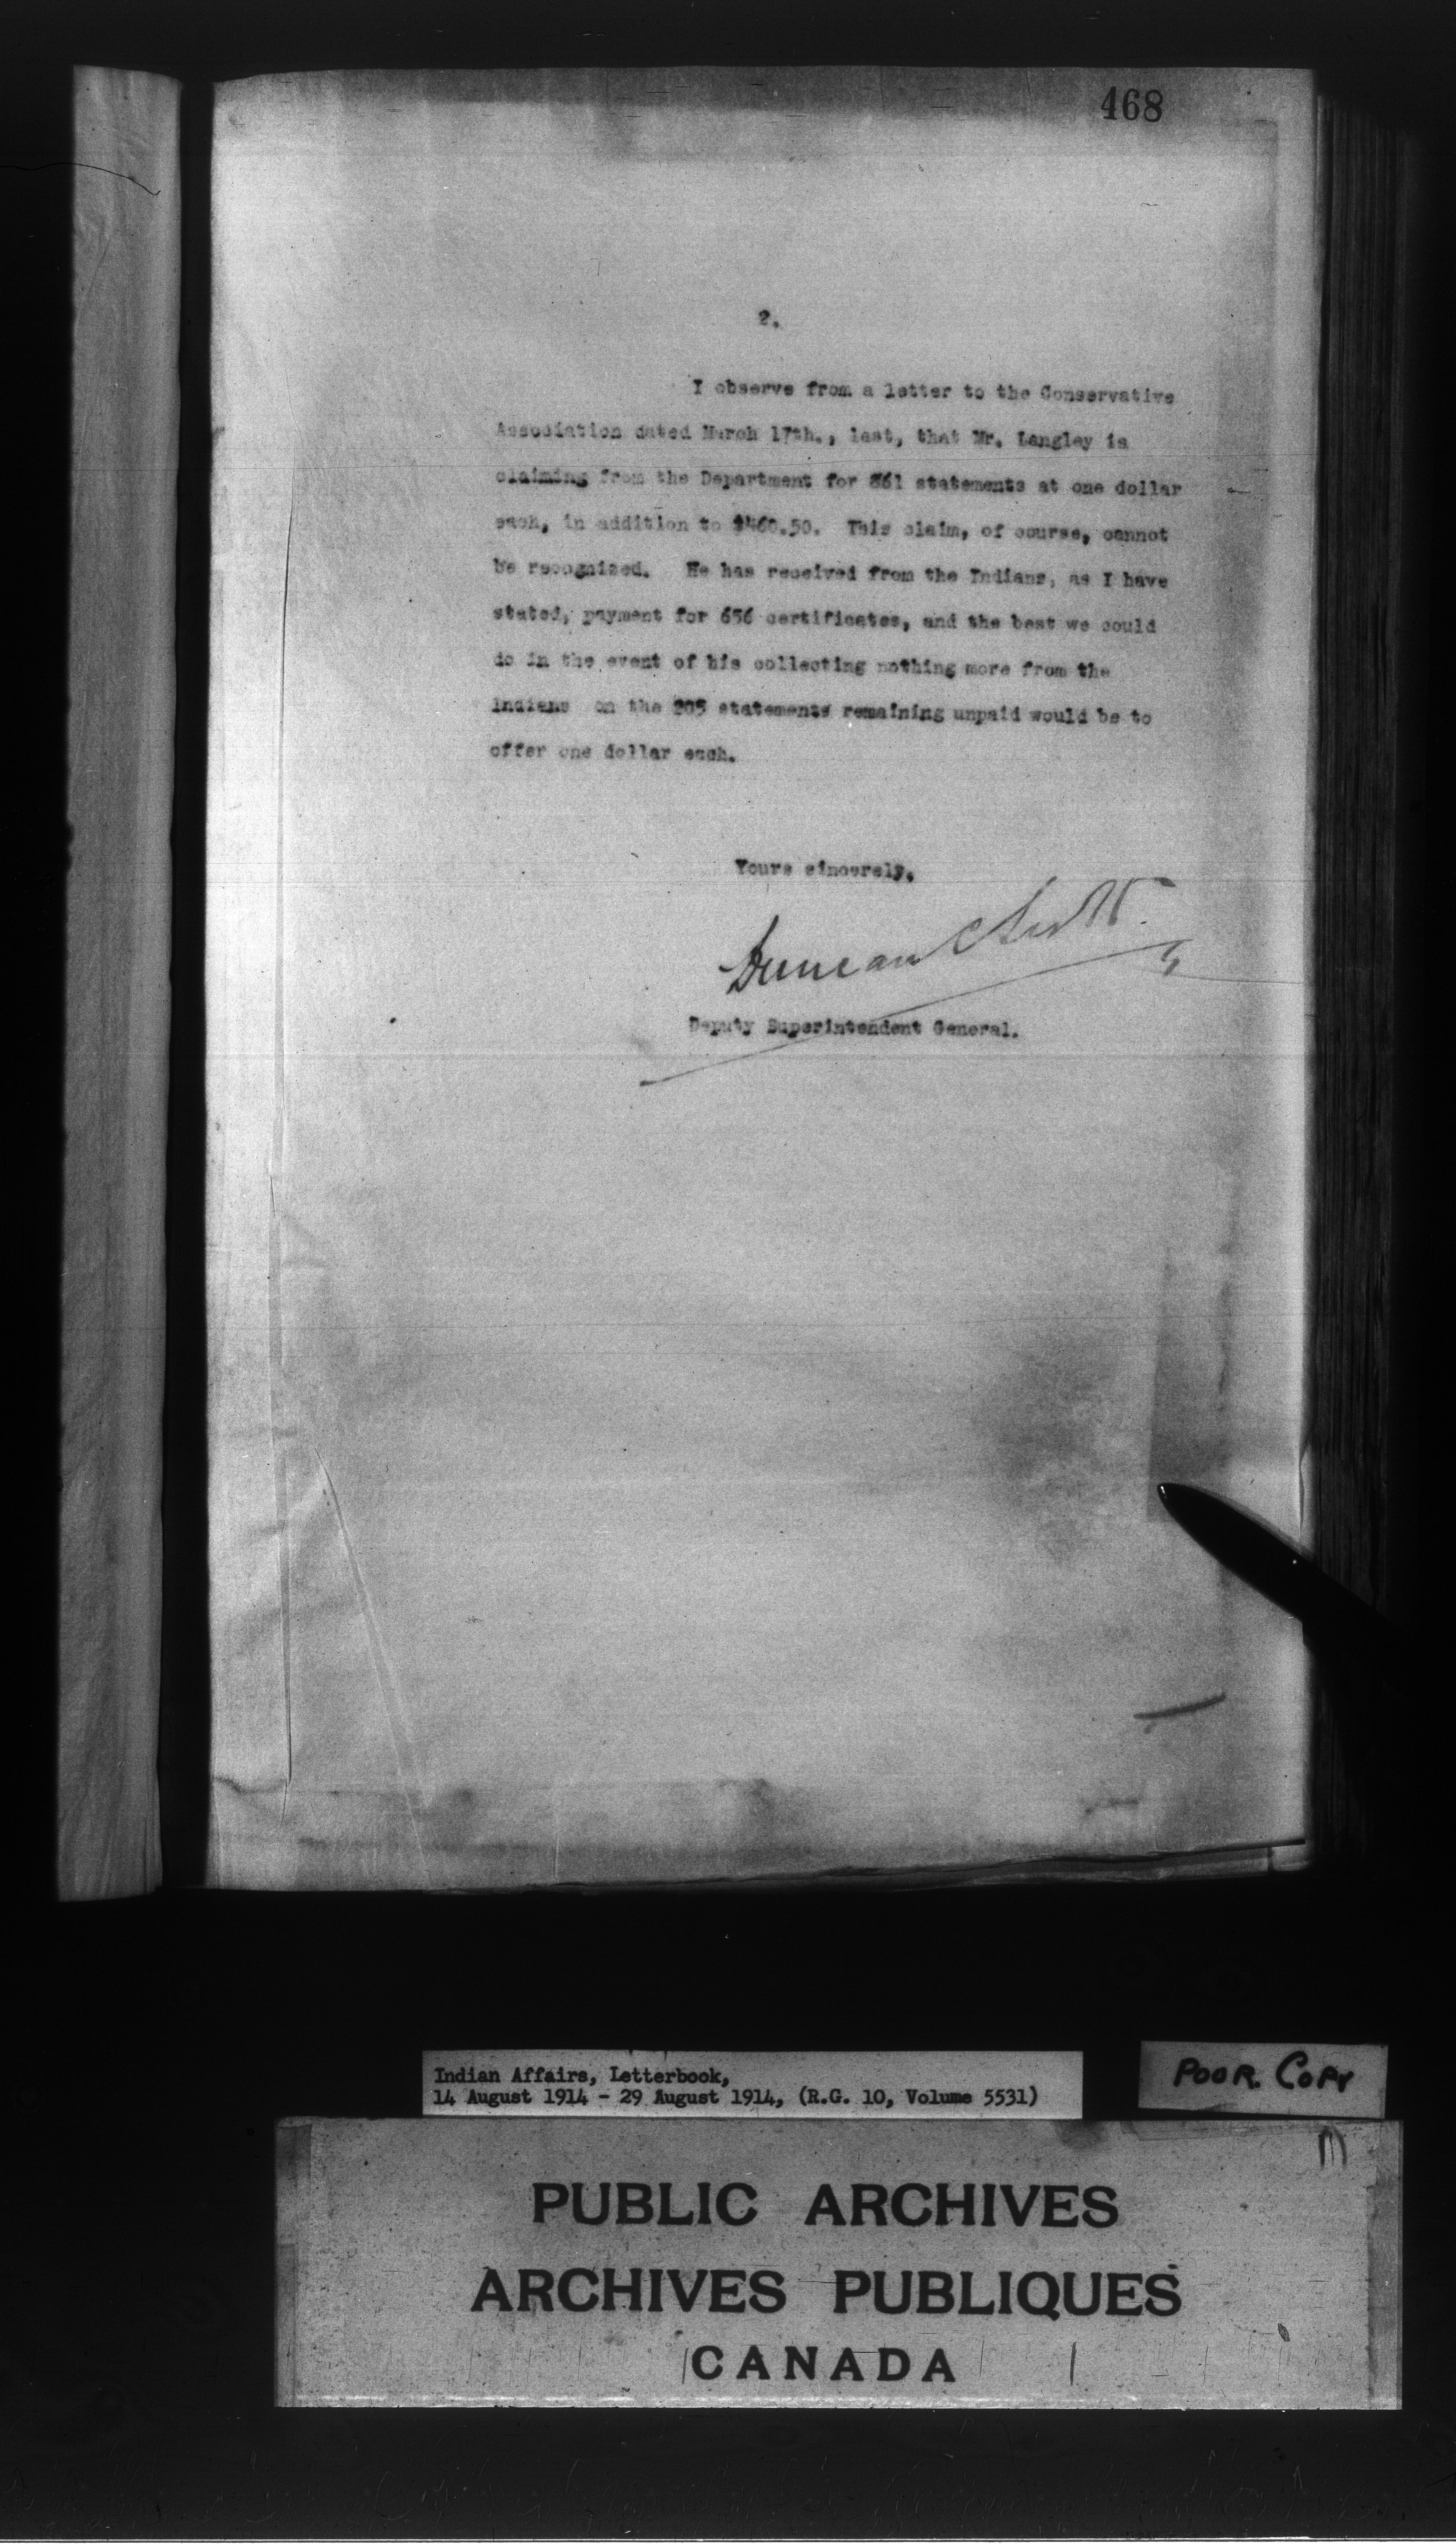 468
2.
I observe from a letter to the Conservative
Association dated March 17th., last, that Mr. Langley is
claiming from the Department for 861 statements at one dollar
each, in addition to $460.50. This claim, of course, cannot
be recognized. He has received from the Indians, as I have
stated, payment for 656 certificates, and the best we could
do in the event of his collecting nothing more from the
Indians on the 205 statements remaining unpaid would be to
offer one dollar each.
Yours sincerely,
Duncan C Scott
Deputy Superintendent General.
Indian Affairs, Letterbook,
14 August 1914 - 29 August 1914, (R.G. 10, Volume 5531)
POOR COPY
PUBLIC ARCHIVES
ARCHIVES PUBLIQUES
CANADA